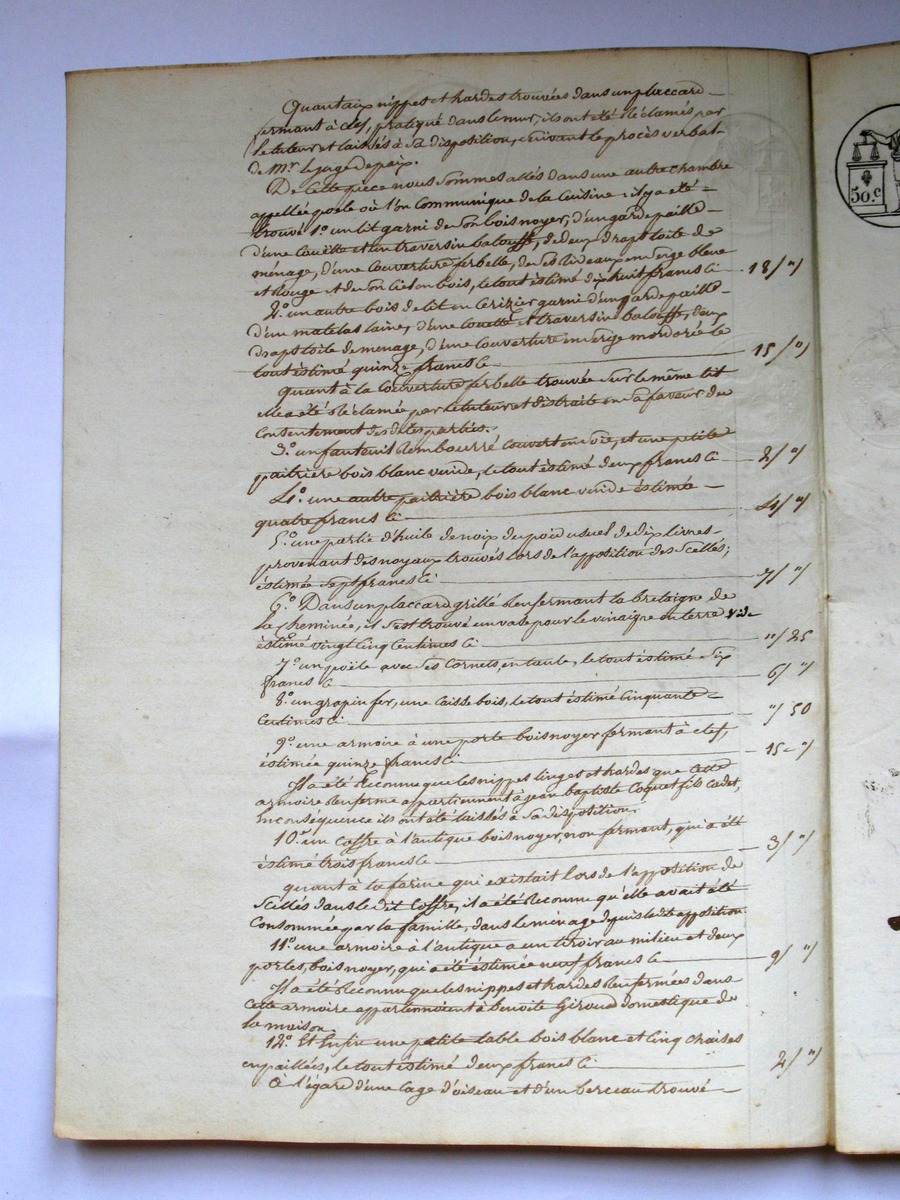 Quant aux nippes et hardes trouvées dans un placcard
fermant à clef, pratiqué dans le mur, ils ont été réclamés par
le tuteur et laissés à sa disposition, suivant le procès verbal
de Mr. le juge de paix.
De cette pièce nous sommes allés dans une autre chambre
appellée poele où l'on communique de la cuisine : il y a été
trouvé 1.o un lit garni de son bois noyer, d'un garde paille
d'une couëtte et un traversin balouffe, de deux draps toile de
ménage, d'une couverture ferbelle, de ses rideaux en serge bleue
et rouge et de son ciel en bois, le tout éstimé dix huit francs ci 18/ "/
2.o un autre bois de lit en cerizier garni d'un garde paille
d'un matelas laine, d'une couette et traversin balouffe, deux
draps toile de menage, d'une couverture en serge mordorée le
tout éstimé quinze francs ci 15/ "/
quant à la couverture ferbelle trouvée sur le même lit
elle a été réclamée par le tuteur et distraite en sa faveur du
consentement des dites parties.
3.o un fauteuil rembourré couvert en soie, et une petite
paitrière bois blanc vuide, le tout éstimé deux francs ci 2/ "/
4.o une autre paitrière bois blanc vuide éstimée
quatre francs ci 4/ "/
5.o une partie d'huile de noix du poid usuel de dix livres
provenant des noyaux trouvés lors de l'apposition des scellés;
éstimée sept francs ci 7/ "/
6.o Dans un placcard grillé renfermant la bretaigne de
la cheminée, il s'est trouvé un vase pour le vinaigre en terre vide
éstimé vingt cinq centimes ci "/ 25
7.o un poële avec ses cornets, en taule, le tout éstimé six
francs ci 6/ "/
8.o un grapin fer, une caisse bois, le tout éstimé cinquante
centimes ci "/ 50
9.o une armoire à une porte bois noyer fermant à clef,
éstimée quinze francs ci 15 "/
Il a été reconnu que les nippes linges et hardes que cette
armoire renferme appartiennent à jean baptiste Coquet fils cadet,
En conséquence ils ont été laissés à sa disposition.
10.o un coffre à l'antique bois noyer, non fermant, qui a été
éstimé trois francs ci 3/ "/
quant à la farine qui existait lors de l'apposition de
scéllés dans le dit coffre, il a été reconnu qu'elle avait été
consommée par la famille, dans le ménage depuis la dite apposition.
11.o une armoire à l'antique a un tiroir au milieu et deux
portes, bois noyer, qui a été éstimée neuf francs ci 9/ "/
Il a été reconnu que les nippes et hardes renfermées dans
cette armoire appartennoient à Benoite Giroud domestique de
la maison.
12.o Et Enfin une petite table bois blanc et cinq chaises
enpaillées, le tout éstimé deux francs ci 2/ "/
à l'égard d'une cage d'oiseau et d'un berceau trouvé
50.c